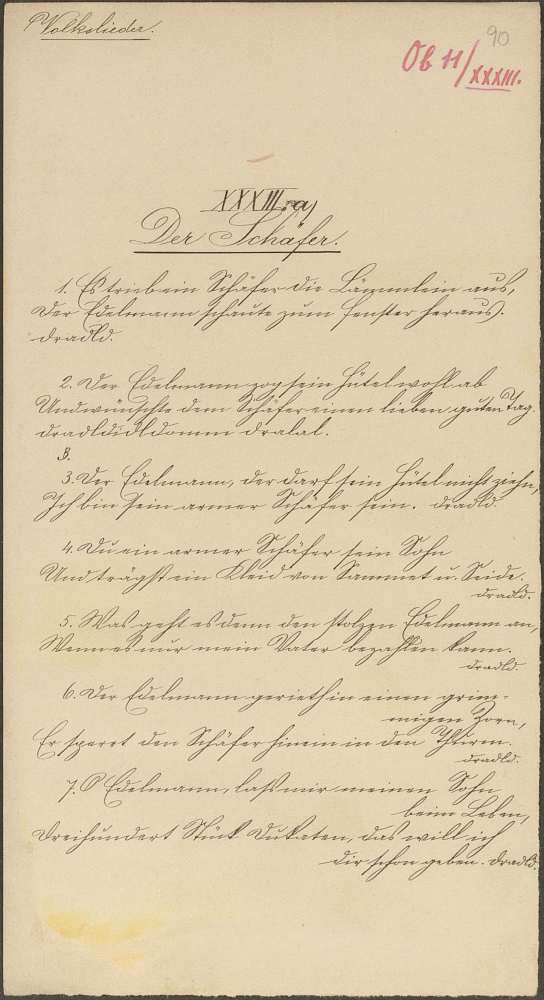 Volkslieder.
90
Ob 11/XXXIII.
XXXIII. a)
Der Schäfer.
1. Es trieb ein Schäfer die Lämmlein aus,
Der Edelmann schaute zum Fenster heraus.
dradld.
2. Der Edelmann zog sein Hütel wohl ab
Und wünschte dem Schäfer einen lieben guten Tag.
dradldidldomm dralal.
3. Der Edelmann, der darf sein Hütel nicht ziehn,
Ich bin sein armer Schäfer sein. dradld.
4. Du ein armer Schäfer sein Sohn
Und trägst ein Kleid von Sammet u. Seide.
dradld.
5. Was geht es denn den stolzen Edelmann an,
Wenn es nur mein Vater bezahlen kann.
dradld.
6. Der Edelmann gerieth in einen grim-
migen Zorn,
Er sperret den Schäfer hinein in den Thurm.
dradld.
7. O Edelmann, laß mir meinen Sohn
beim Leben,
Dreihundert Stück Dukaten, das will ich
dir schon geben. dradld.